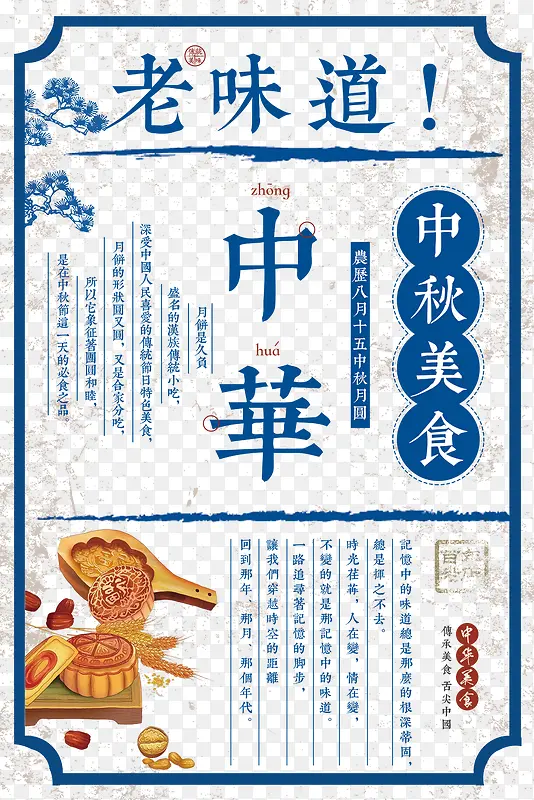 老味道！
傳統美味
中秋美食
農歷八月十五中秋月圓
zhōng
中
huá
華
月餅是久負
盛名的漢族傳統小吃，
深受中國人民喜愛的傳統節日特色美食，
月餅的形狀圓又圓，又是合家分吃，
所以它象征著團圓和睦，
是在中秋節這一天的必食之品。
記憶中的味道總是那麼的根深蒂固，
總是揮之不去。
時光荏苒，人在變，情在變，
不變的就是那記憶中的味道。
一路追尋著記憶的脚步，
讓我們穿越時空的距離
回到那年、那月、那個年代。
中华美食
傳承美食 舌尖中國